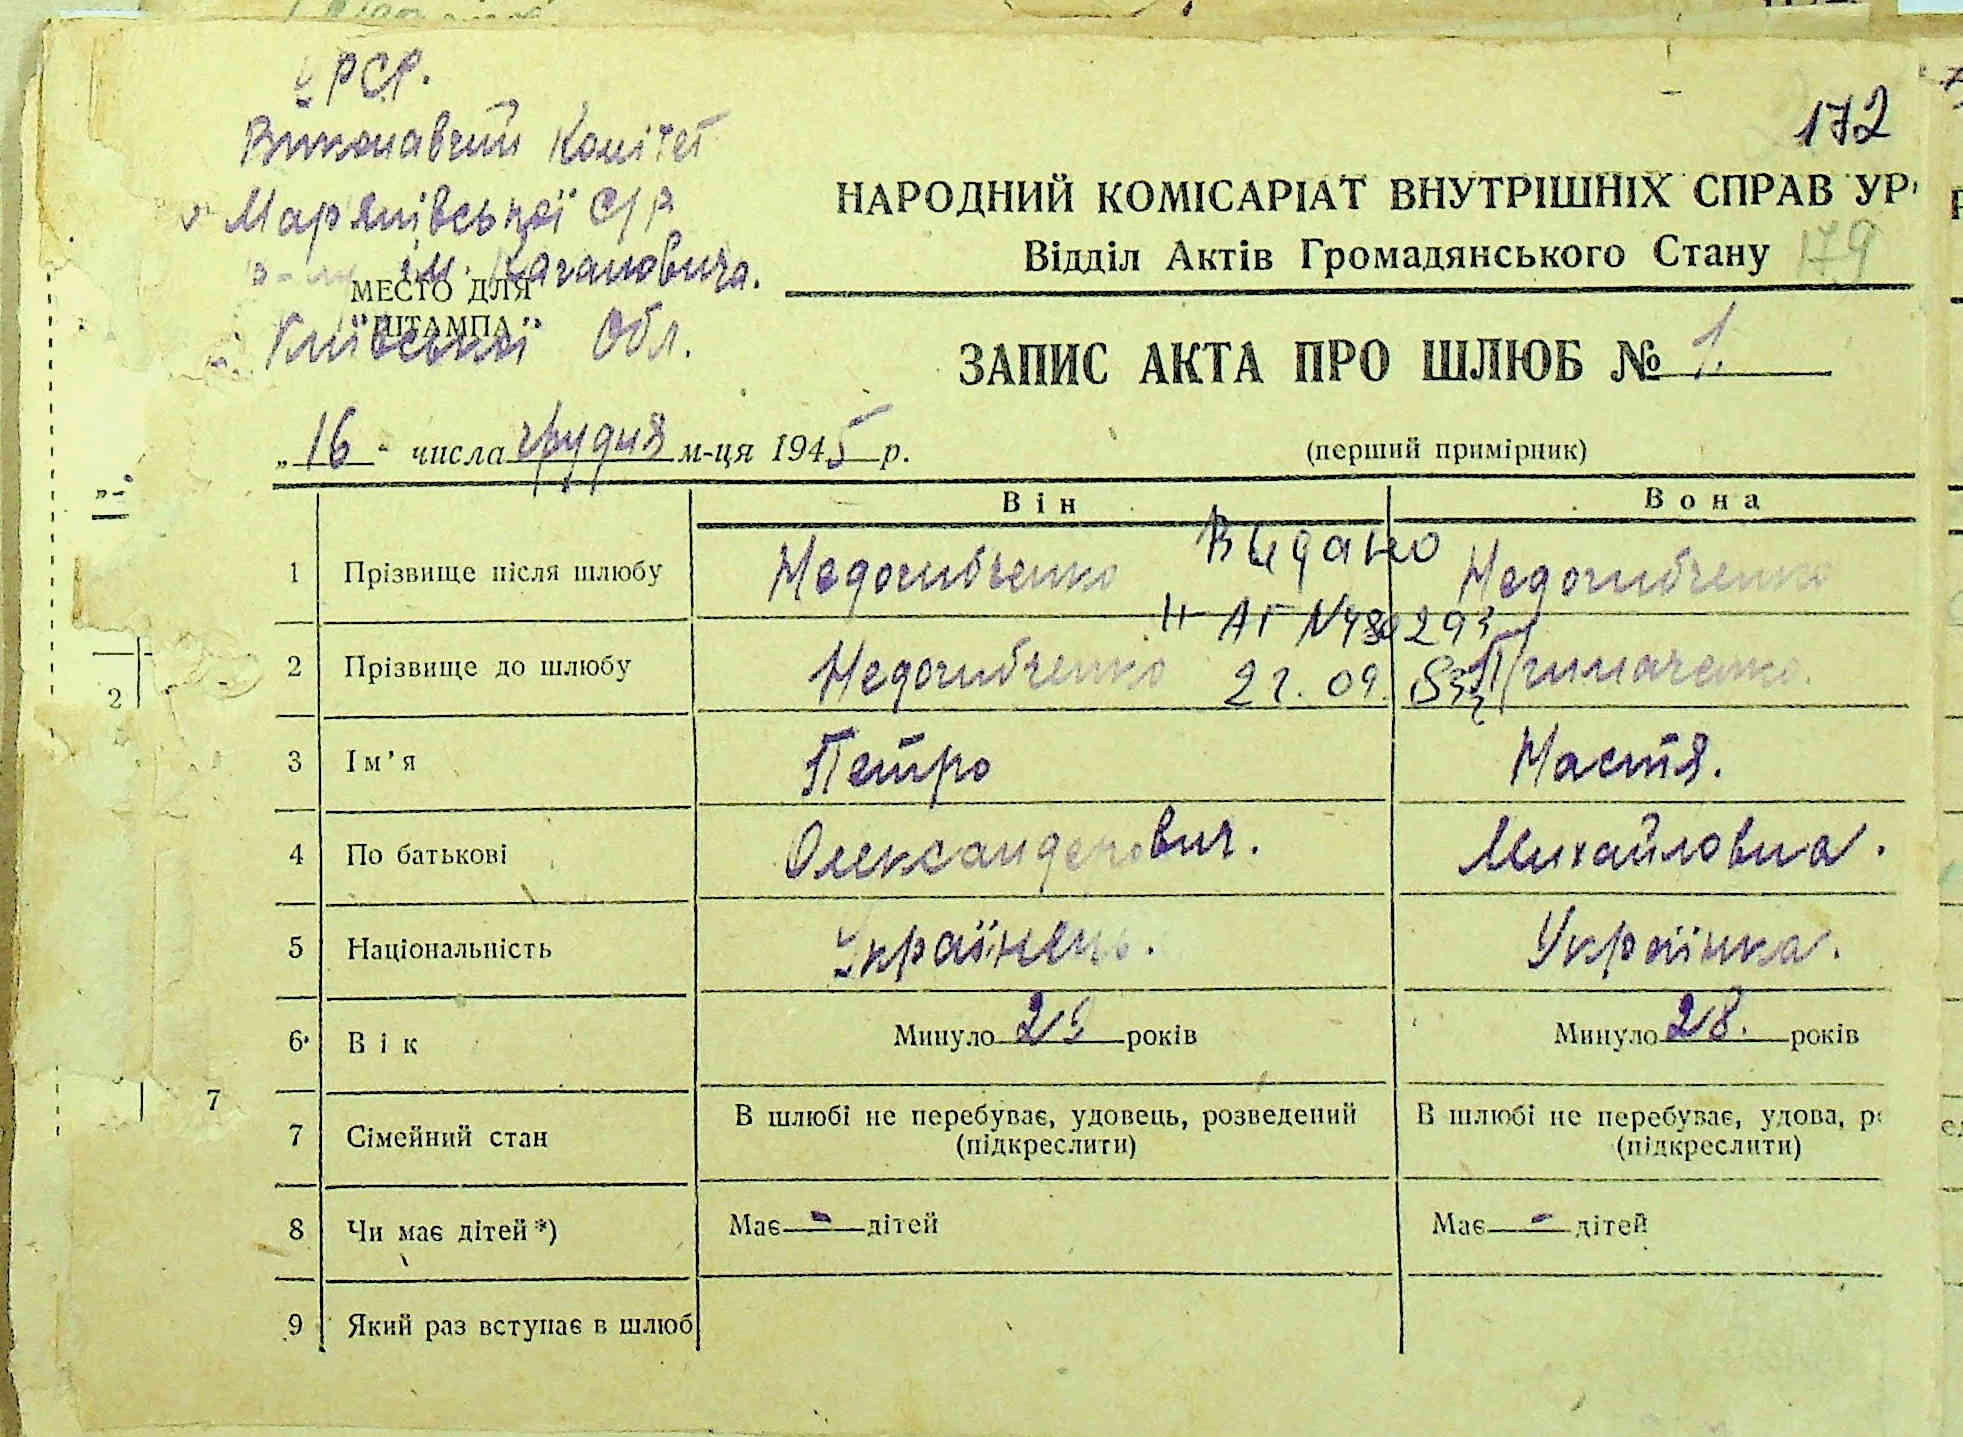 УРСР.
Виконавчий Комітет
Мар'янівської С/Р
р-ну ім. Кагановича.
Київської Обл.
МЕСТО ДЛЯ
"ШТАМПА"
172
НАРОДНИЙ КОМІСАРІАТ ВНУТРІШНІХ СПРАВ УР
Відділ Актів Громадянського Стану 179
ЗАПИС АКТА ПРО ШЛЮБ № 1.
„16" числа грудня м-ця 1945 р.
(перший примірник)
Він Вона
Видано
1 Прізвище після шлюбу Недогибченко Недогибченко
II-АГ №480293
2 Прізвище до шлюбу Недогибченко Примаченко.
21.09.
3 Ім'я Петро Настя.
4 По батькові Олександрович. Михайловна.
5 Національність Українець. Українка.
6 Вік Минуло 29 років Минуло 28. років
7 Сімейний стан В шлюбі не перебуває, удовець, розведений В шлюбі не перебуває, удова, р
(підкреслити) (підкреслити)
8 Чи має дітей*) Має - дітей Має - дітей
9 Який раз вступає в шлюб
2
7